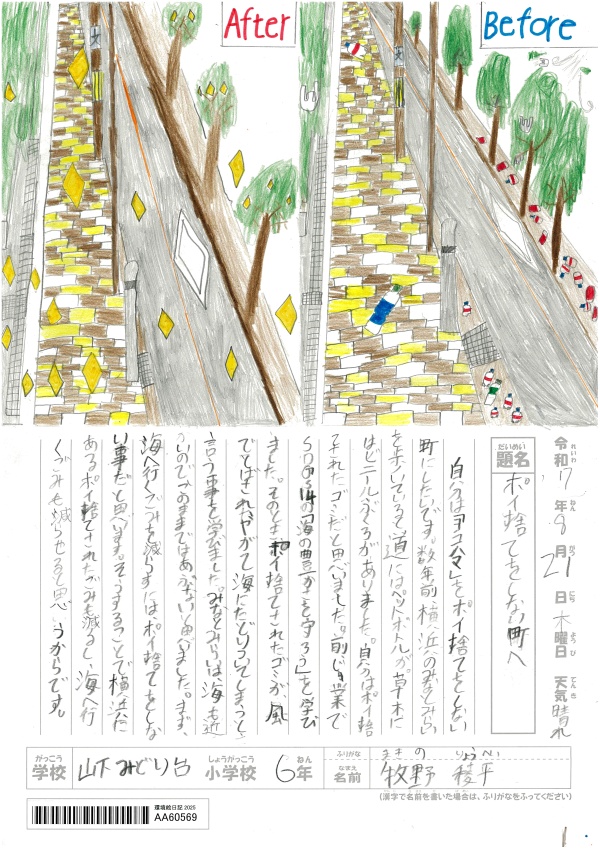 After
Before
令和7年8月21日木曜日 天気 晴れ
れいわ ねん がつ にち ようび てんき
だいめい
題名
ポイ捨てをしない町へ
自分は「ヨコハマ」をポイ捨てをしない
町にしたいです。数年前横浜のみなとみらい
を歩いていると道にはペットボトルが。草木に
はビニールぶくろがありました。自分はポイ捨
てされたゴミだと思いました。前に授業で
SDGs14「海の豊かさを守ろう」を学び
ました。そのときポイ捨てされたゴミが、風
でとばされやがて海にたどりついてしまうと
言う事を学びました。みなとみらいは海も近
いのでこのままではあぶないと思いました。まず、
海へ行くごみを減らすにはポイ捨てをしな
い事だと思います。そうすることで横浜に
あるポイ捨てされたごみも減るし、海へ行
くごみも減らせると思うからです。
がっこう しょうがっこう ねん ふりがな まきの りょうへい
学校 山下みどり台 小学校 6年 なまえ 名前 牧野 稜平
(漢字で名前を書いた場合は、ふりがなをふってください)
環境絵日記 2025
AA60569
1